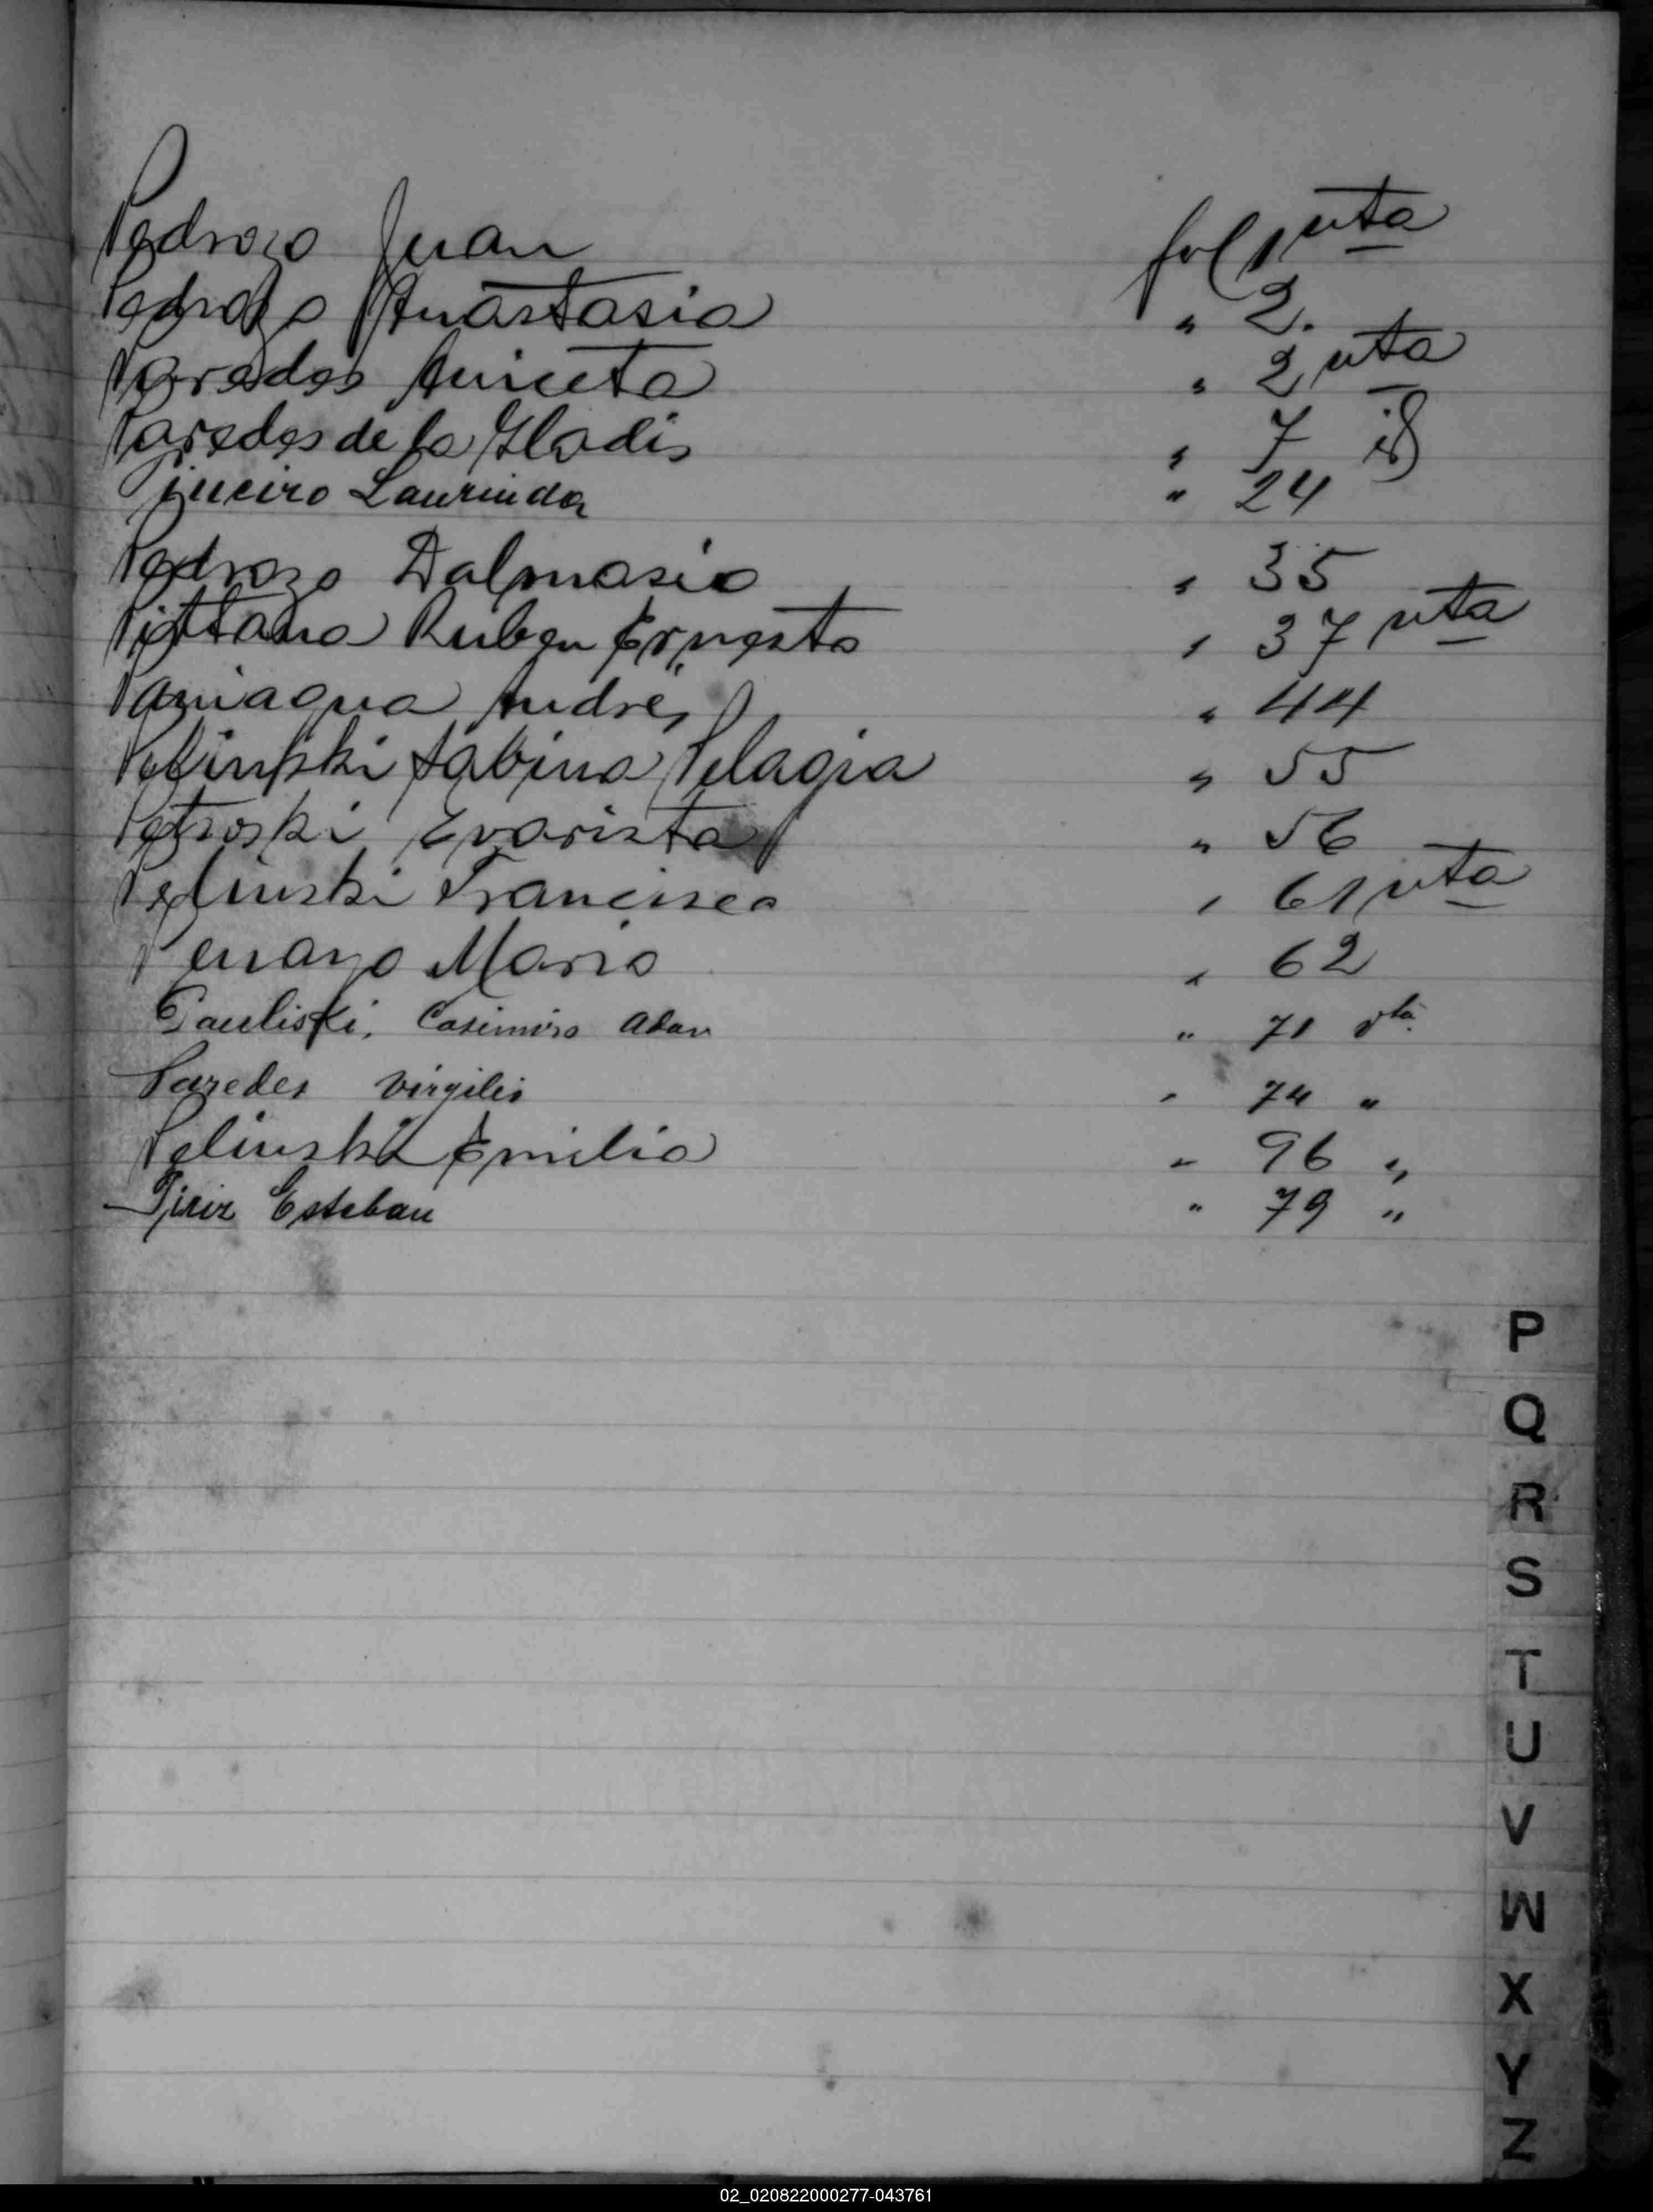 Pedrozo Juan fol 1 vta
Pedrozo Anastasia " 2.
Paredes Aniceta " 2 vta
Paredes de la Gladis " 7
Piñeiro Laurinda " 24
Pedrozo Dalmasio " 35
Pittana Ruben Ernesto " 37 vta
Paniagua Andrés " 44
Pelinski Sabina Pelagia " 55
Petroski Evarista " 56
Pelinski Francisca " 61 vta
Penayo Mario " 62
Pauliski, Casimiro Adan " 71 vta
Paredes Virgilio " 74 "
Pelinski Emilia " 96 "
Piriz Esteban " 79 "
P
Q
R
S
T
U
V
W
X
Y
Z
02_020822000277-043761